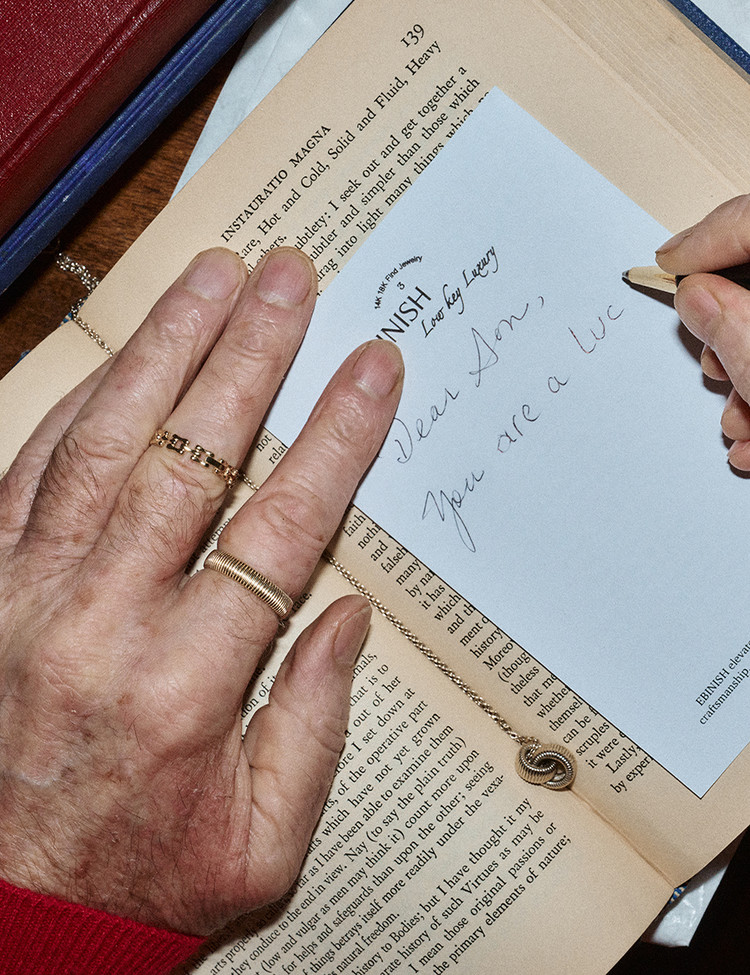 139
INSTAURATIO MAGNA
are, Hot and Cold, Solid and Fluid, Heavy
hers.
ubtlety: I seek out and get together a
ubtler and simpler than those which
rag into light many things which
14K 18K Find Jewelry
3
EBINISH
Low key Luxury
Dear Son,
You are a Luc
EBINISH elevate
craftsmanship
not
rela
attempt
faith
noth
and
falseh
many
by na
it has
which
and th
ment o
history
Moreo
(thoug
theless
that me
whethe
themse
can be
scruples
it were
Lastly,
by exper
mals,
tion of it
hat is to
out of her
ore I set down at
, of the operative part
ts which have not yet grown
far as I have been able to examine them
they conduce to the end in view. Nay (to say the plain truth)
(low and vulgar as men may think it) count more upon
for helps and safeguards than upon the other; seeing
of things betrays itself more readily under the vexa-
its natural freedom.
history to Bodies; but I have thought it my
arate history of such Virtues as may be
I mean those original passions or
the primary elements of nature;